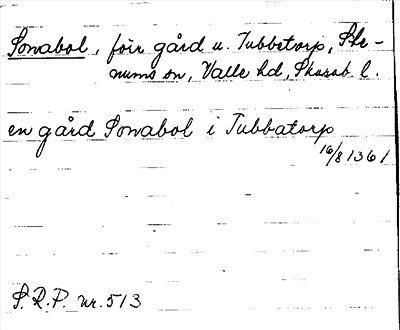 Sonabol, förr gård u. Tubbetorp, Ste-
nums sn, Valle hd, Skarab. l.
en gård Sonabol i Tubbatorp
16/8 1361
S.R.P. nr. 513